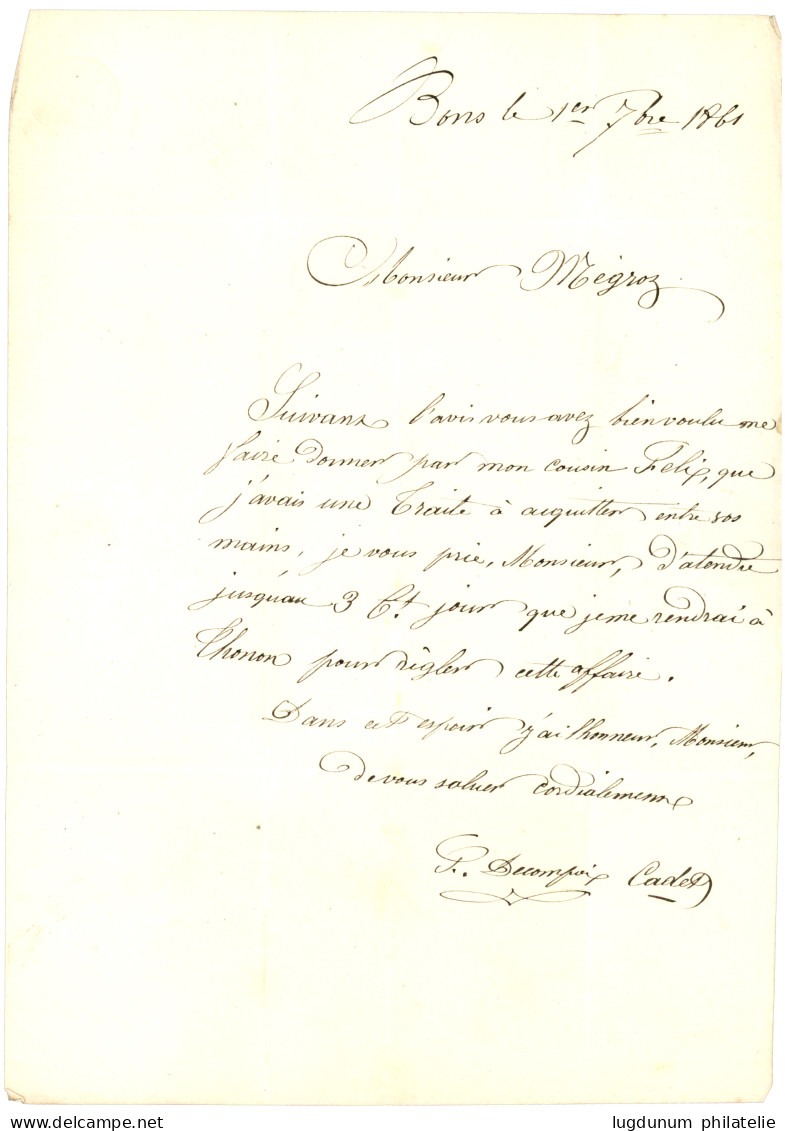 Bons le 1er 7bre 1861
Monsieur Mégroz
Suivant l'avis vous avez bien voulu me
faire donner par mon cousin Felix, que
j'avais une Traite à aiquitter entre vos
mains, je vous prie, Monsieur, d'atendre
jusqu'au 3 Ct. jour que je me rendrai à
Thonon pour règler cette affaire.
Dans cet espoir j'ai lhonneur, Monsieur,
de vous saluer cordialement
Cadet
lugdunum philatelie